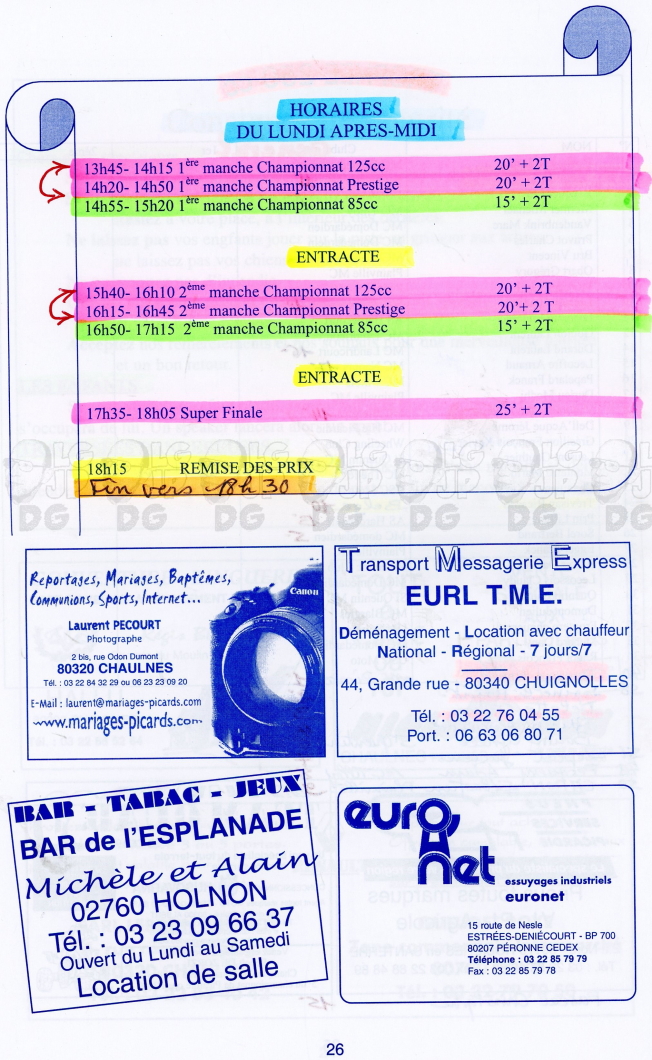 HORAIRES
DU LUNDI APRES-MIDI
13h45- 14h15 1ère manche Championnat 125cc 20' + 2T
14h20- 14h50 1ère manche Championnat Prestige 20' + 2T
14h55- 15h20 1ère manche Championnat 85cc 15' + 2T
ENTRACTE
15h40- 16h10 2ème manche Championnat 125cc 20' + 2T
16h15- 16h45 2ème manche Championnat Prestige 20'+ 2 T
16h50- 17h15 2ème manche Championnat 85cc 15' + 2T
ENTRACTE
17h35- 18h05 Super Finale 25' + 2T
18h15 REMISE DES PRIX
Fin vers 18h30
LG JP DG LG JP DG LG JP DG LG JP DG LG JP DG LG JP DG
Reportages, Mariages, Baptêmes,
Communions, Sports, Internet...
Canon
Laurent PECOURT
Photographe
2 bis, rue Odon Dumont
80320 CHAULNES
Tél. : 03 22 84 32 29 ou 06 23 23 09 20
E-Mail : laurent@mariages-picards.com
www.mariages-picards.com
Transport Messagerie Express
EURL T.M.E.
Déménagement - Location avec chauffeur
National - Régional - 7 jours/7
44, Grande rue - 80340 CHUIGNOLLES
Tél. : 03 22 76 04 55
Port. : 06 63 06 80 71
BAR - TABAC - JEUX
BAR de l'ESPLANADE
Michèle et Alain
02760 HOLNON
Tél. : 03 23 09 66 37
Ouvert du Lundi au Samedi
Location de salle
euro net
essuyages industriels
euronet
15 route de Nesle
ESTRÉES-DENIÉCOURT - BP 700
80207 PÉRONNE CEDEX
Téléphone : 03 22 85 79 79
Fax : 03 22 85 79 78
26